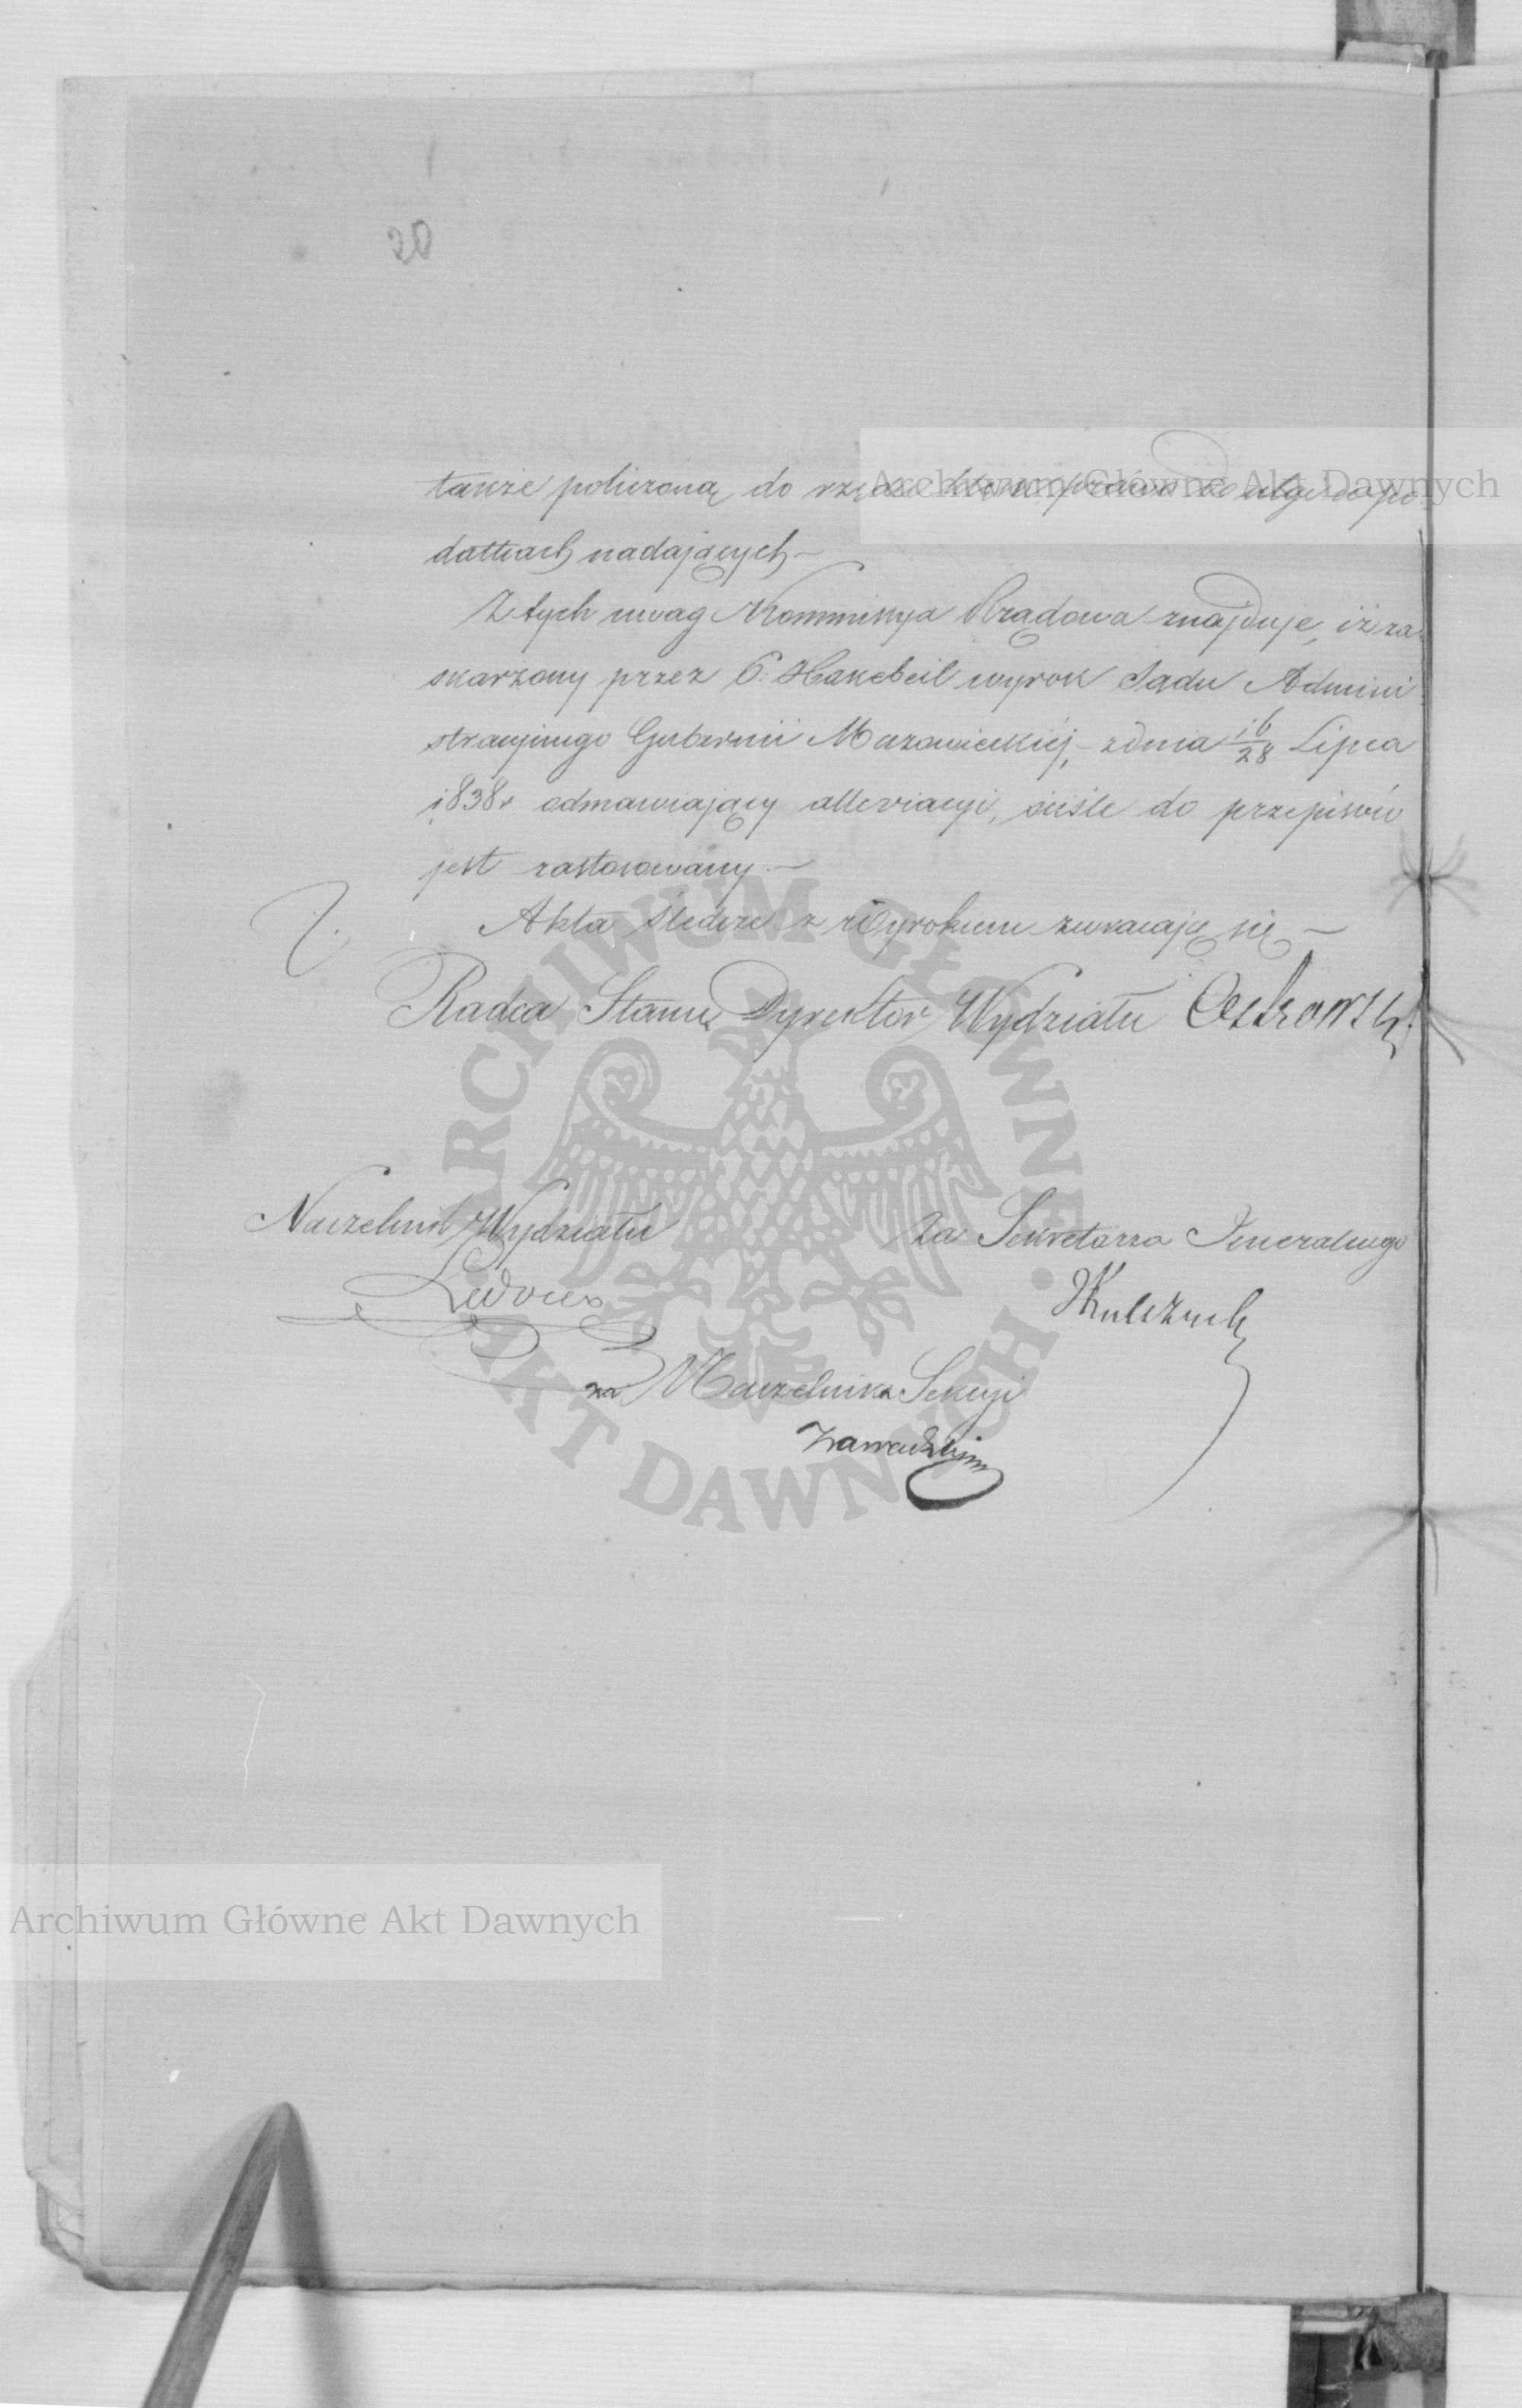 20
także policzoną do rzędu klęsk prawo do ulgi w po
datkach nadających –
Z tych uwag Kommissya Rządowa znajduje, iż za
skarżony przez G. Hakebeil wyrok Sądu Admini
stracyjnego Gubernii Mazowieckiéj, – z dnia 16/28 Lipca
1838 r odmawiający allewiacyi, ściśle do przepisów
jest zastosowany. –
Akta śledcze z Wyrokiem zwracają się –
Radca Stanu Dyrektor Wydziału Ostrowski
Naczelnik Wydziału
za Sekretarza Jeneralnego
za Naczelnika Sekcyi
Archiwum Główne Akt Dawnych
ARCHIWUM GŁÓWNE AKT DAWNYCH
Archiwum Główne Akt Dawnych